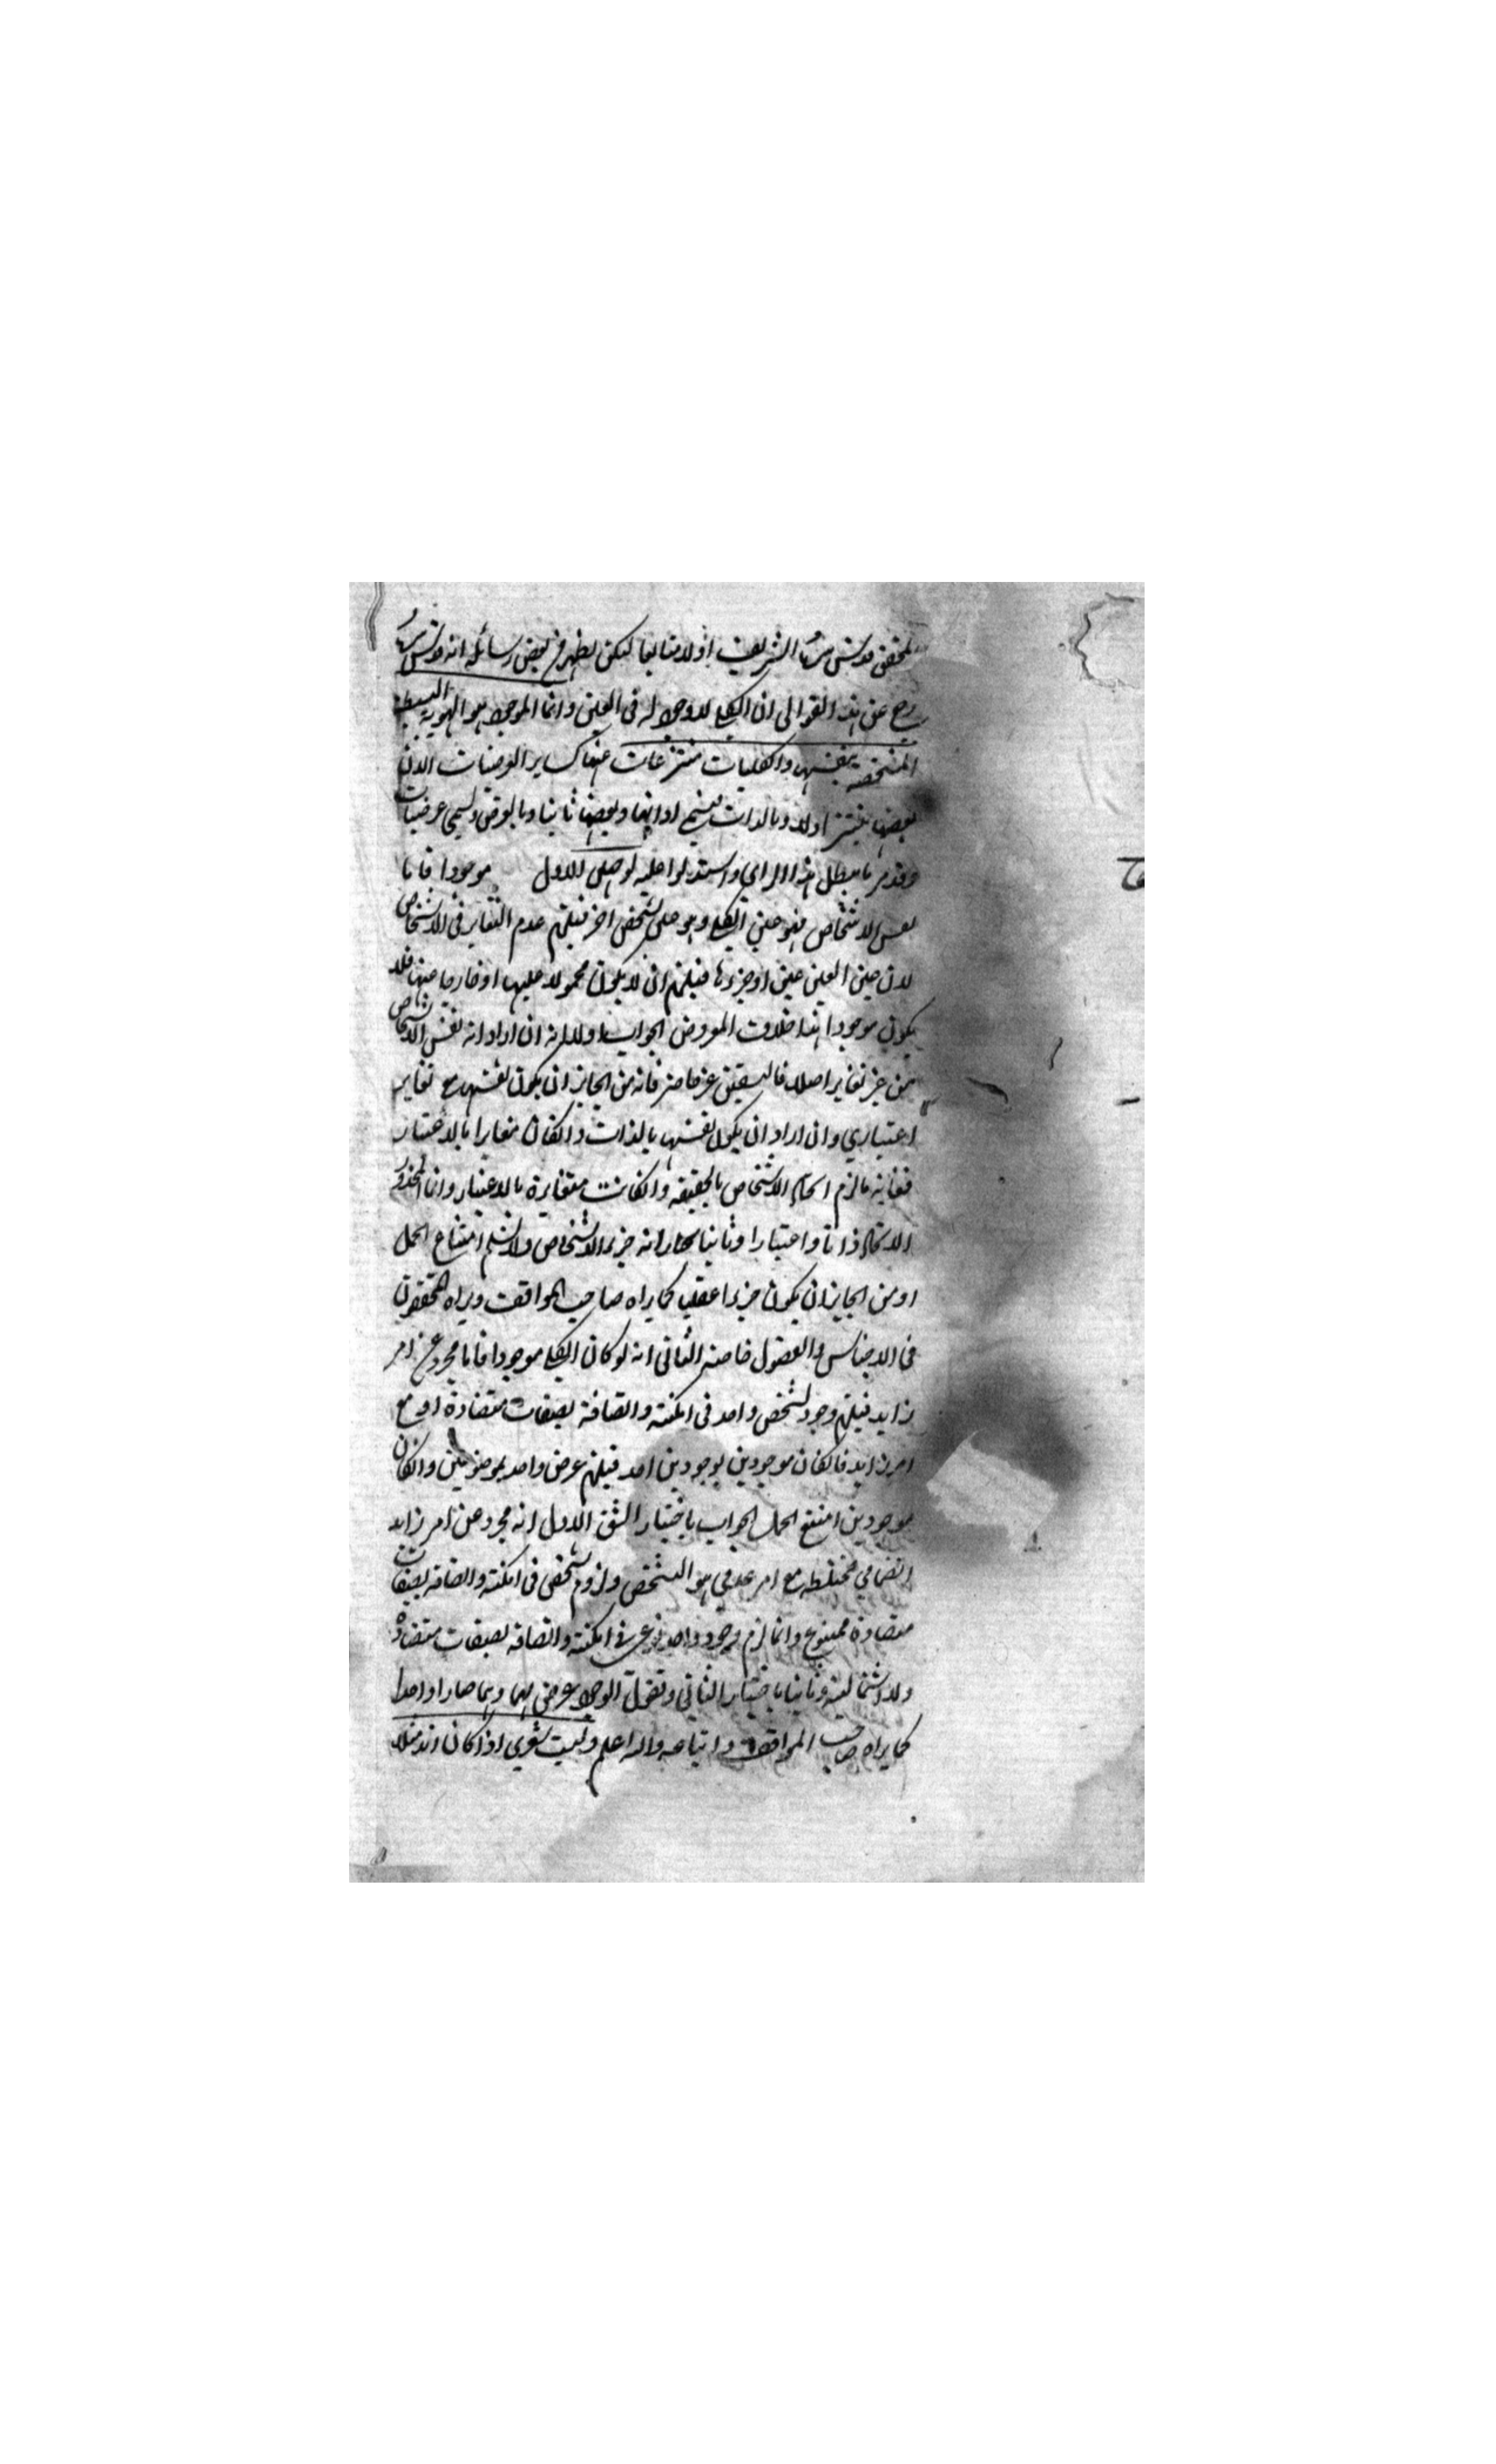 المحقق قدس سره الشريف اولا متابعا لكن يظهر من بعض رسائله انه قدس سره
رجع عن هذا القول الى ان الكلي لا وجود له في العين وانما الموجود هو الهوية البسيطة
المشخصة بنفسها والكليات منتزعات عنها كساير العرضيات الا ان
بعضها ينتزع اولا وبالذات يسمى ذاتيا وبعضها ثانيا وبالعرض ويسمى عرضيات
وقد مر ما يبطل هذا الراي واستدلوا عليه لو صلى الاول موجودا فاما
نفس الاشخاص فهو عين الكلي وهو على شخص اخر فيلزم عدم التغاير في الاشخاص
لان عين العين عين او جزءها فيلزم ان لا يكون محمولا عليها او خارجا عنها فلا
يكون موجودا هذا خلاف المفروض الجواب اولا انه ان اراد انه نفس الاشخاص
من غير تغاير اصلا فالشقين غير حاصر فانه من الجايز ان يكون نفسها مع تغاير
اعتباري وان اراد ان يكون نفسها بالذات وان كان مغايرا بالاعتبار
فغاية ما لزم اتحاد الاشخاص بالحقيقة وان كانت متغايرة بالاعتبار وانما المحذور
الاتحاد ذاتا واعتبارا وثانيا نختار انه جزء الاشخاص ولا نسلم امتناع الحمل
او من الجايز ان يكون جزءا عقليا كما يراه صاحب المواقف ويراه المحققون
في الاجناس والفصول خاصة الثاني انه لو كان الكلي موجودا فاما مجرد عن امر
زايد فيلزم وجود شخص واحد في امكنة واتصافه بصفات متضادة او مع
امر زايد فان كان موجودين بوجود واحد فيلزم عرض واحد بموضوعين وان كان
موجودين امتنع الحمل الجواب باختيار الشق الاول انه مجرد عن امر زايد
انضمامي مختلطه مع امر عدمي هو التشخص ولزوم شخص في امكنة واتصافه بصفات
متضادة ممنوع وانما لزم وجود واحد نوعي في امكنة واتصافه بصفات متضادة
ولا استحالة وثانيا باختيار الثاني ونقول الوجود عرض لهما وهما صارا واحدا
كما يراه صاحب المواقف واتباعه والله اعلم وليت شعري اذا كان